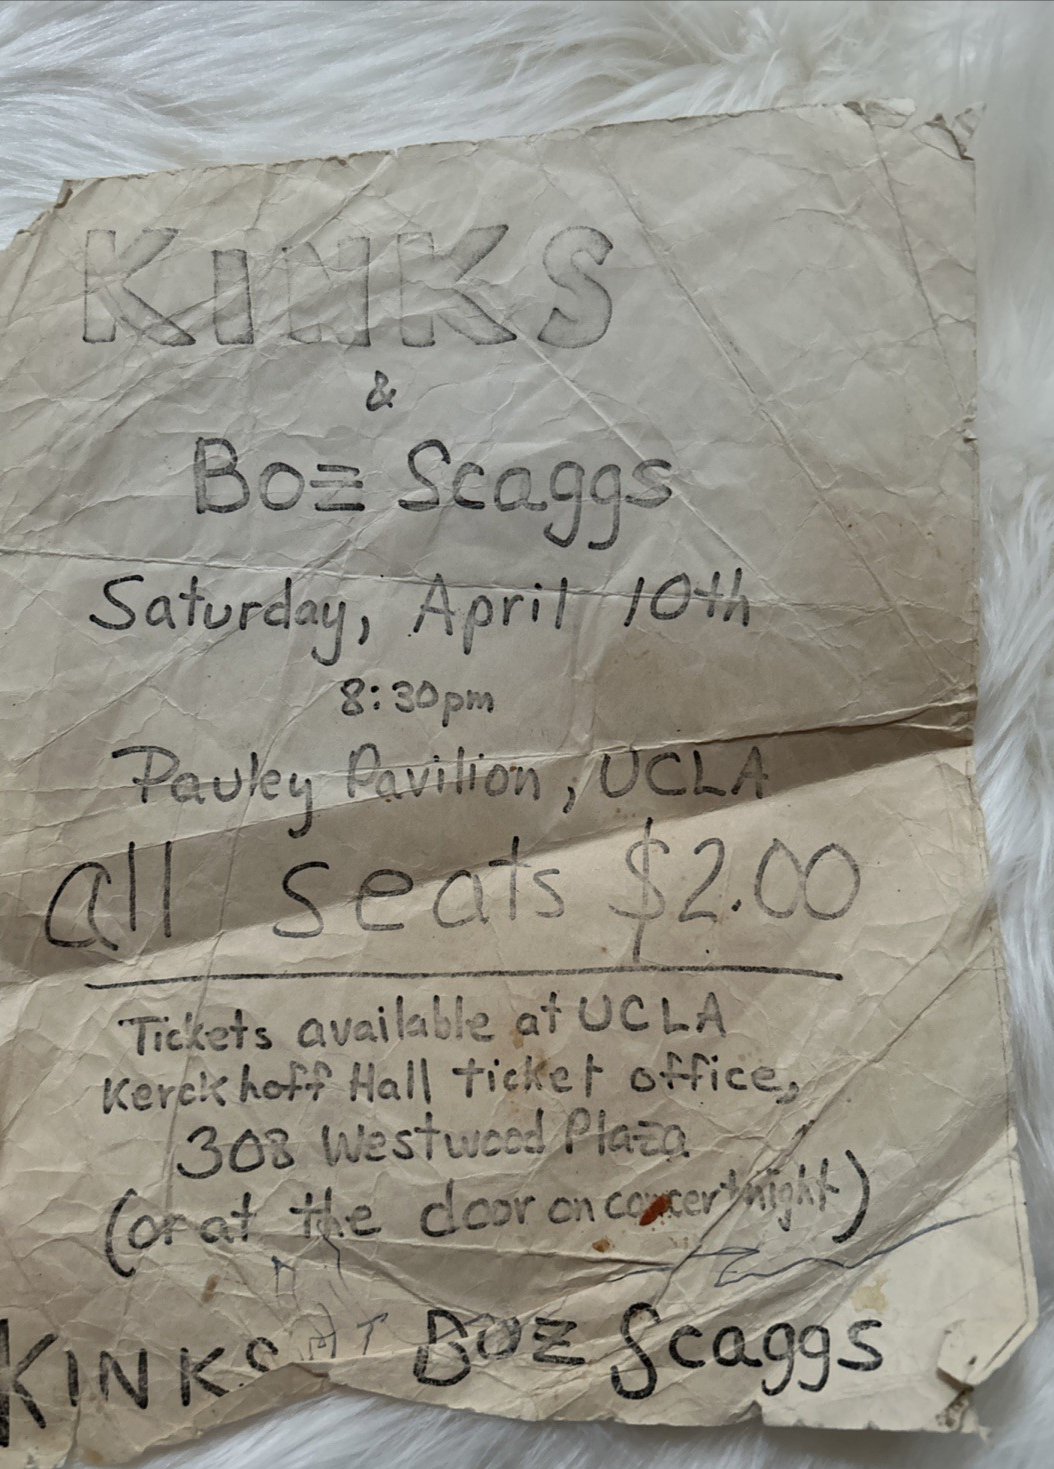 KINKS
&
Boz Scaggs
Saturday, April 10th
8:30pm
Pauley Pavilion, UCLA
all seats $2.00
Tickets available at UCLA
Kerckhoff Hall ticket office,
308 Westwood Plaza
(or at the door on concert night)
KINKS Boz Scaggs